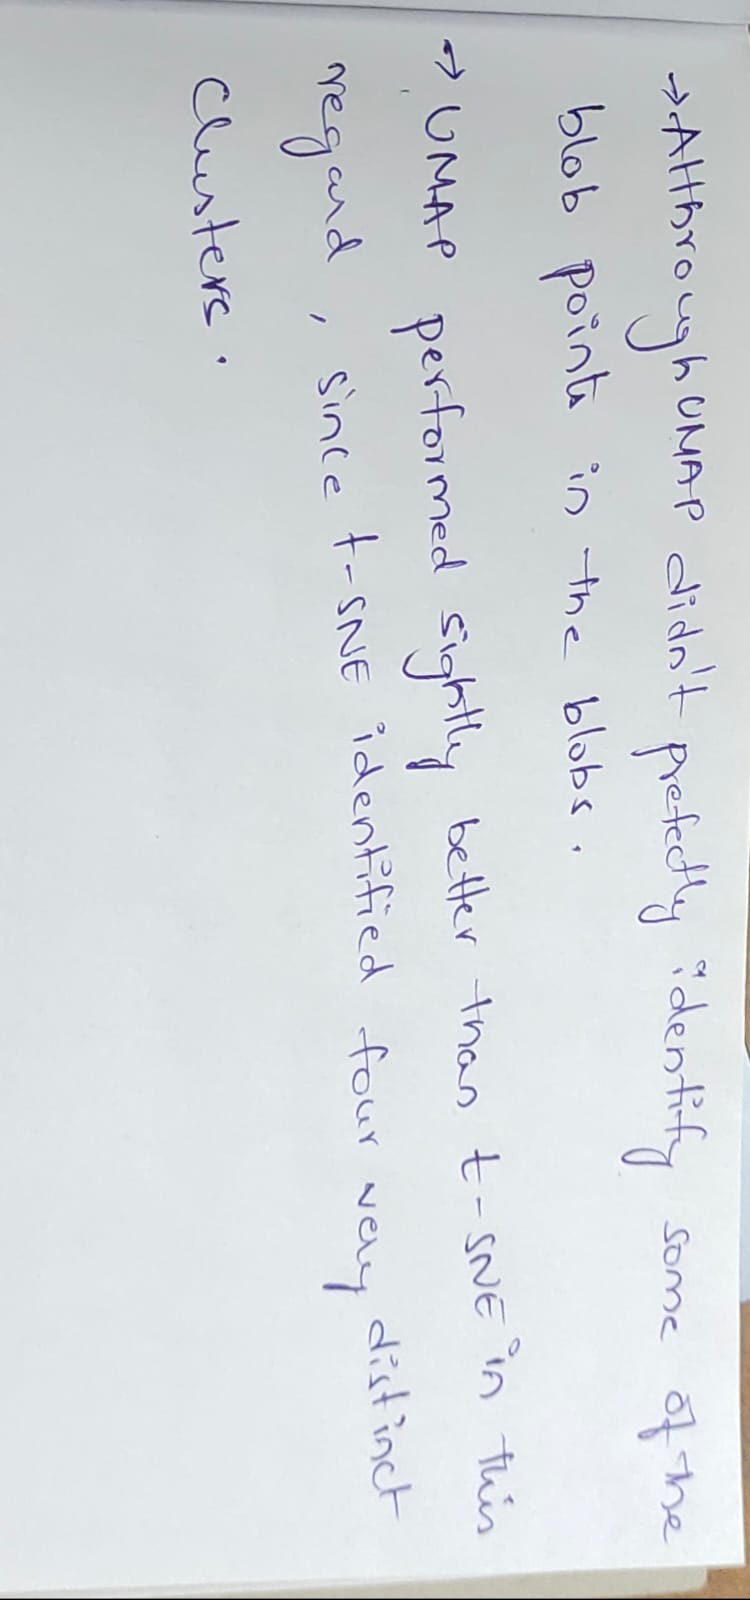 → Althrough UMAP didn't prefectly identify some of the
blob points in the blobs.
→ UMAP performed sightly better than t-SNE in this
regard, since t-SNE identified four very distinct
Clusters.